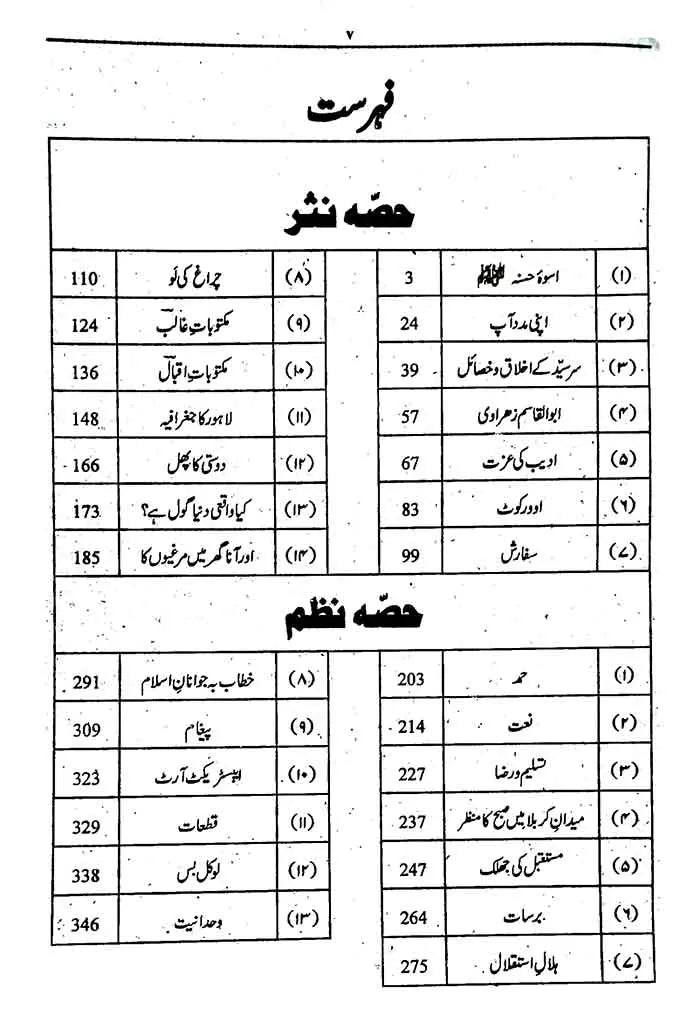 ۷
فہرست
حصّہ نثر
(۱) اسوۂ حسنہ ﷺ 3
(۲) اپنی مدد آپ 24
(۳) سرسیّد کے اخلاق و خصائل 39
(۴) ابوالقاسم زھراوی 57
(۵) ادیب کی عزت 67
(۶) اوور کوٹ 83
(۷) سفارش 99
(۸) چراغ کی لَو 110
(۹) مکتوباتِ غالبؔ 124
(۱۰) مکتوباتِ اقبالؔ 136
(۱۱) لاہور کا جغرافیہ 148
(۱۲) دوستی کا پھل 166
(۱۳) کیا واقعی دنیا گول ہے؟ 173
(۱۴) اور آنا گھر میں مرغیوں کا 185
حصّہ نظم
(۱) حمد 203
(۲) نعت 214
(۳) تسلیم و رضا 227
(۴) میدانِ کربلا میں صبح کا منظر 237
(۵) مستقبل کی جھلک 247
(۶) برسات 264
(۷) ہلالِ استقلال 275
(۸) خطاب بہ جوانانِ اسلام 291
(۹) پیغام 309
(۱۰) ایبسٹریکٹ آرٹ 323
(۱۱) قطعات 329
(۱۲) لوکل بس 338
(۱۳) وحدانیت 346